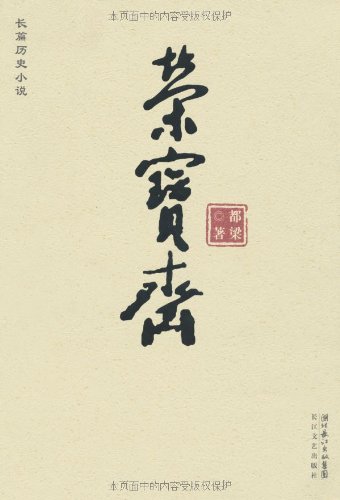 本页面中的内容受版权保护
长篇历史小说
荣寳斋
都梁◎著
湖北长江出版集团
长江文艺出版社
本页面中的内容受版权保护